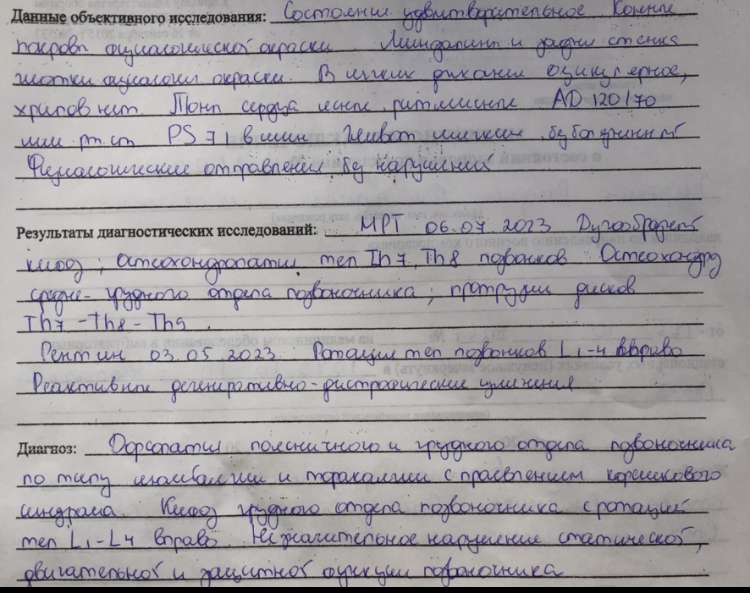 Данные объективного исследования: Состояние удовлетворительное Кожные
покровы физиологической окраски Миндалины и задняя стенка
глотки физиологич окраски. В легких дыхание везикулярное,
хрипов нет. Тоны сердца ясные, ритмичные АД 120/70
мм рт.ст PS 71 в мин Живот мягкий, безболезненный
Физиологические отправления без нарушений
Результаты диагностических исследований: МРТ 06.07.2023 Дугообразный
кифоз; Остеохондропатия тел Th7, Th8 позвонков Остеохондроз
средне-грудного отдела позвоночника; протрузии дисков
Th7-Th8-Th9.
Рентген 03.05.2023 Ротация тел позвонков L1-4 вправо
Реактивные дегенеративно-дистрофические изменения
Диагноз: Дорсопатия поясничного и грудного отдела позвоночника
по типу люмбалгии и торакалгии с проявлением корешкового
синдрома. Кифоз грудного отдела позвоночника с ротацией
тел L1-L4 вправо Незначительное нарушение статической,
двигательной и защитной функции позвоночника